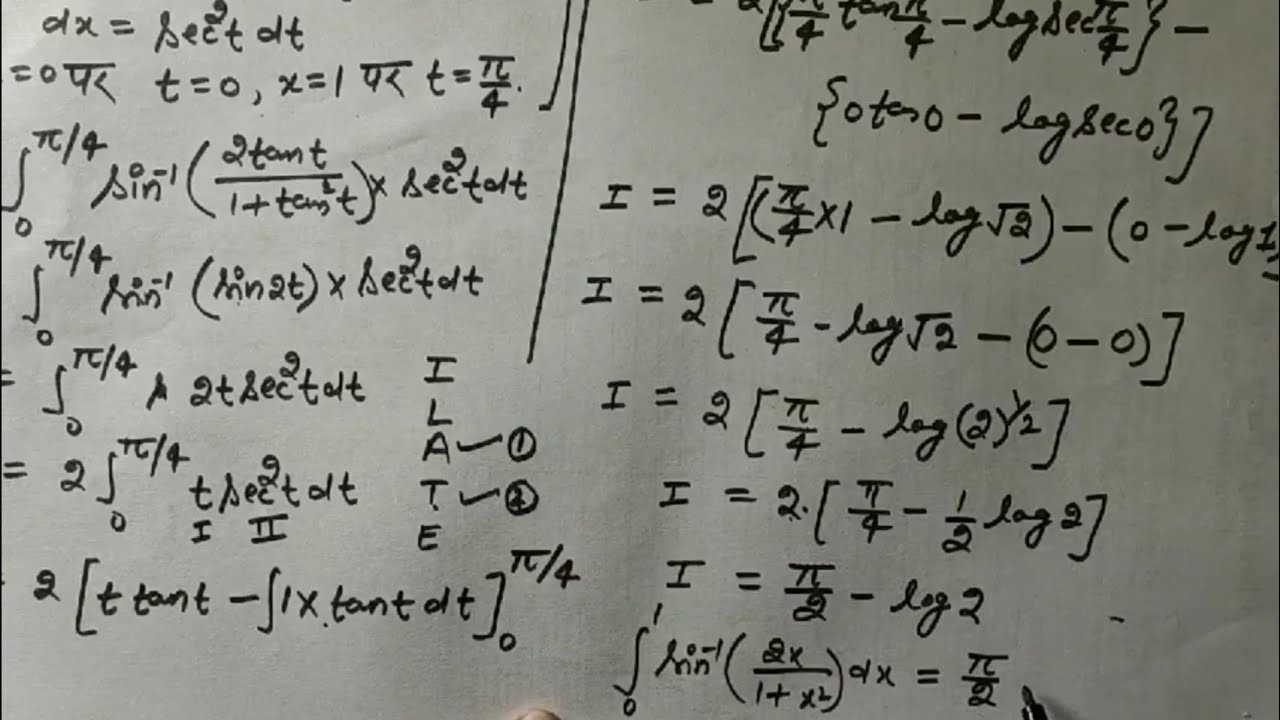 dx = sec²t dt
=0 पर t=0, x=1 पर t=π/4.
∫₀^π/4 sin⁻¹(2tant/1+tan²t)× sec²t dt
∫₀^π/4 sin⁻¹(sin2t)× sec²t dt
= ∫₀^π/4 2t sec²t dt
= 2∫₀^π/4 t sec²t dt
I II
2[t tant - ∫1×tant dt]₀^π/4
I
L
A ①
T ②
E
2[{π/4 tanπ/4 - logsecπ/4} -
{0tan0 - logsec0}]
I = 2[(π/4×1 - log√2) - (0 - log1)
I = 2[π/4 - log√2 - (0-0)]
I = 2[π/4 - log(2)^1/2]
I = 2.[π/4 - 1/2 log2]
I = π/2 - log2
∫₀¹ sin⁻¹(2x/1+x²)dx = π/2